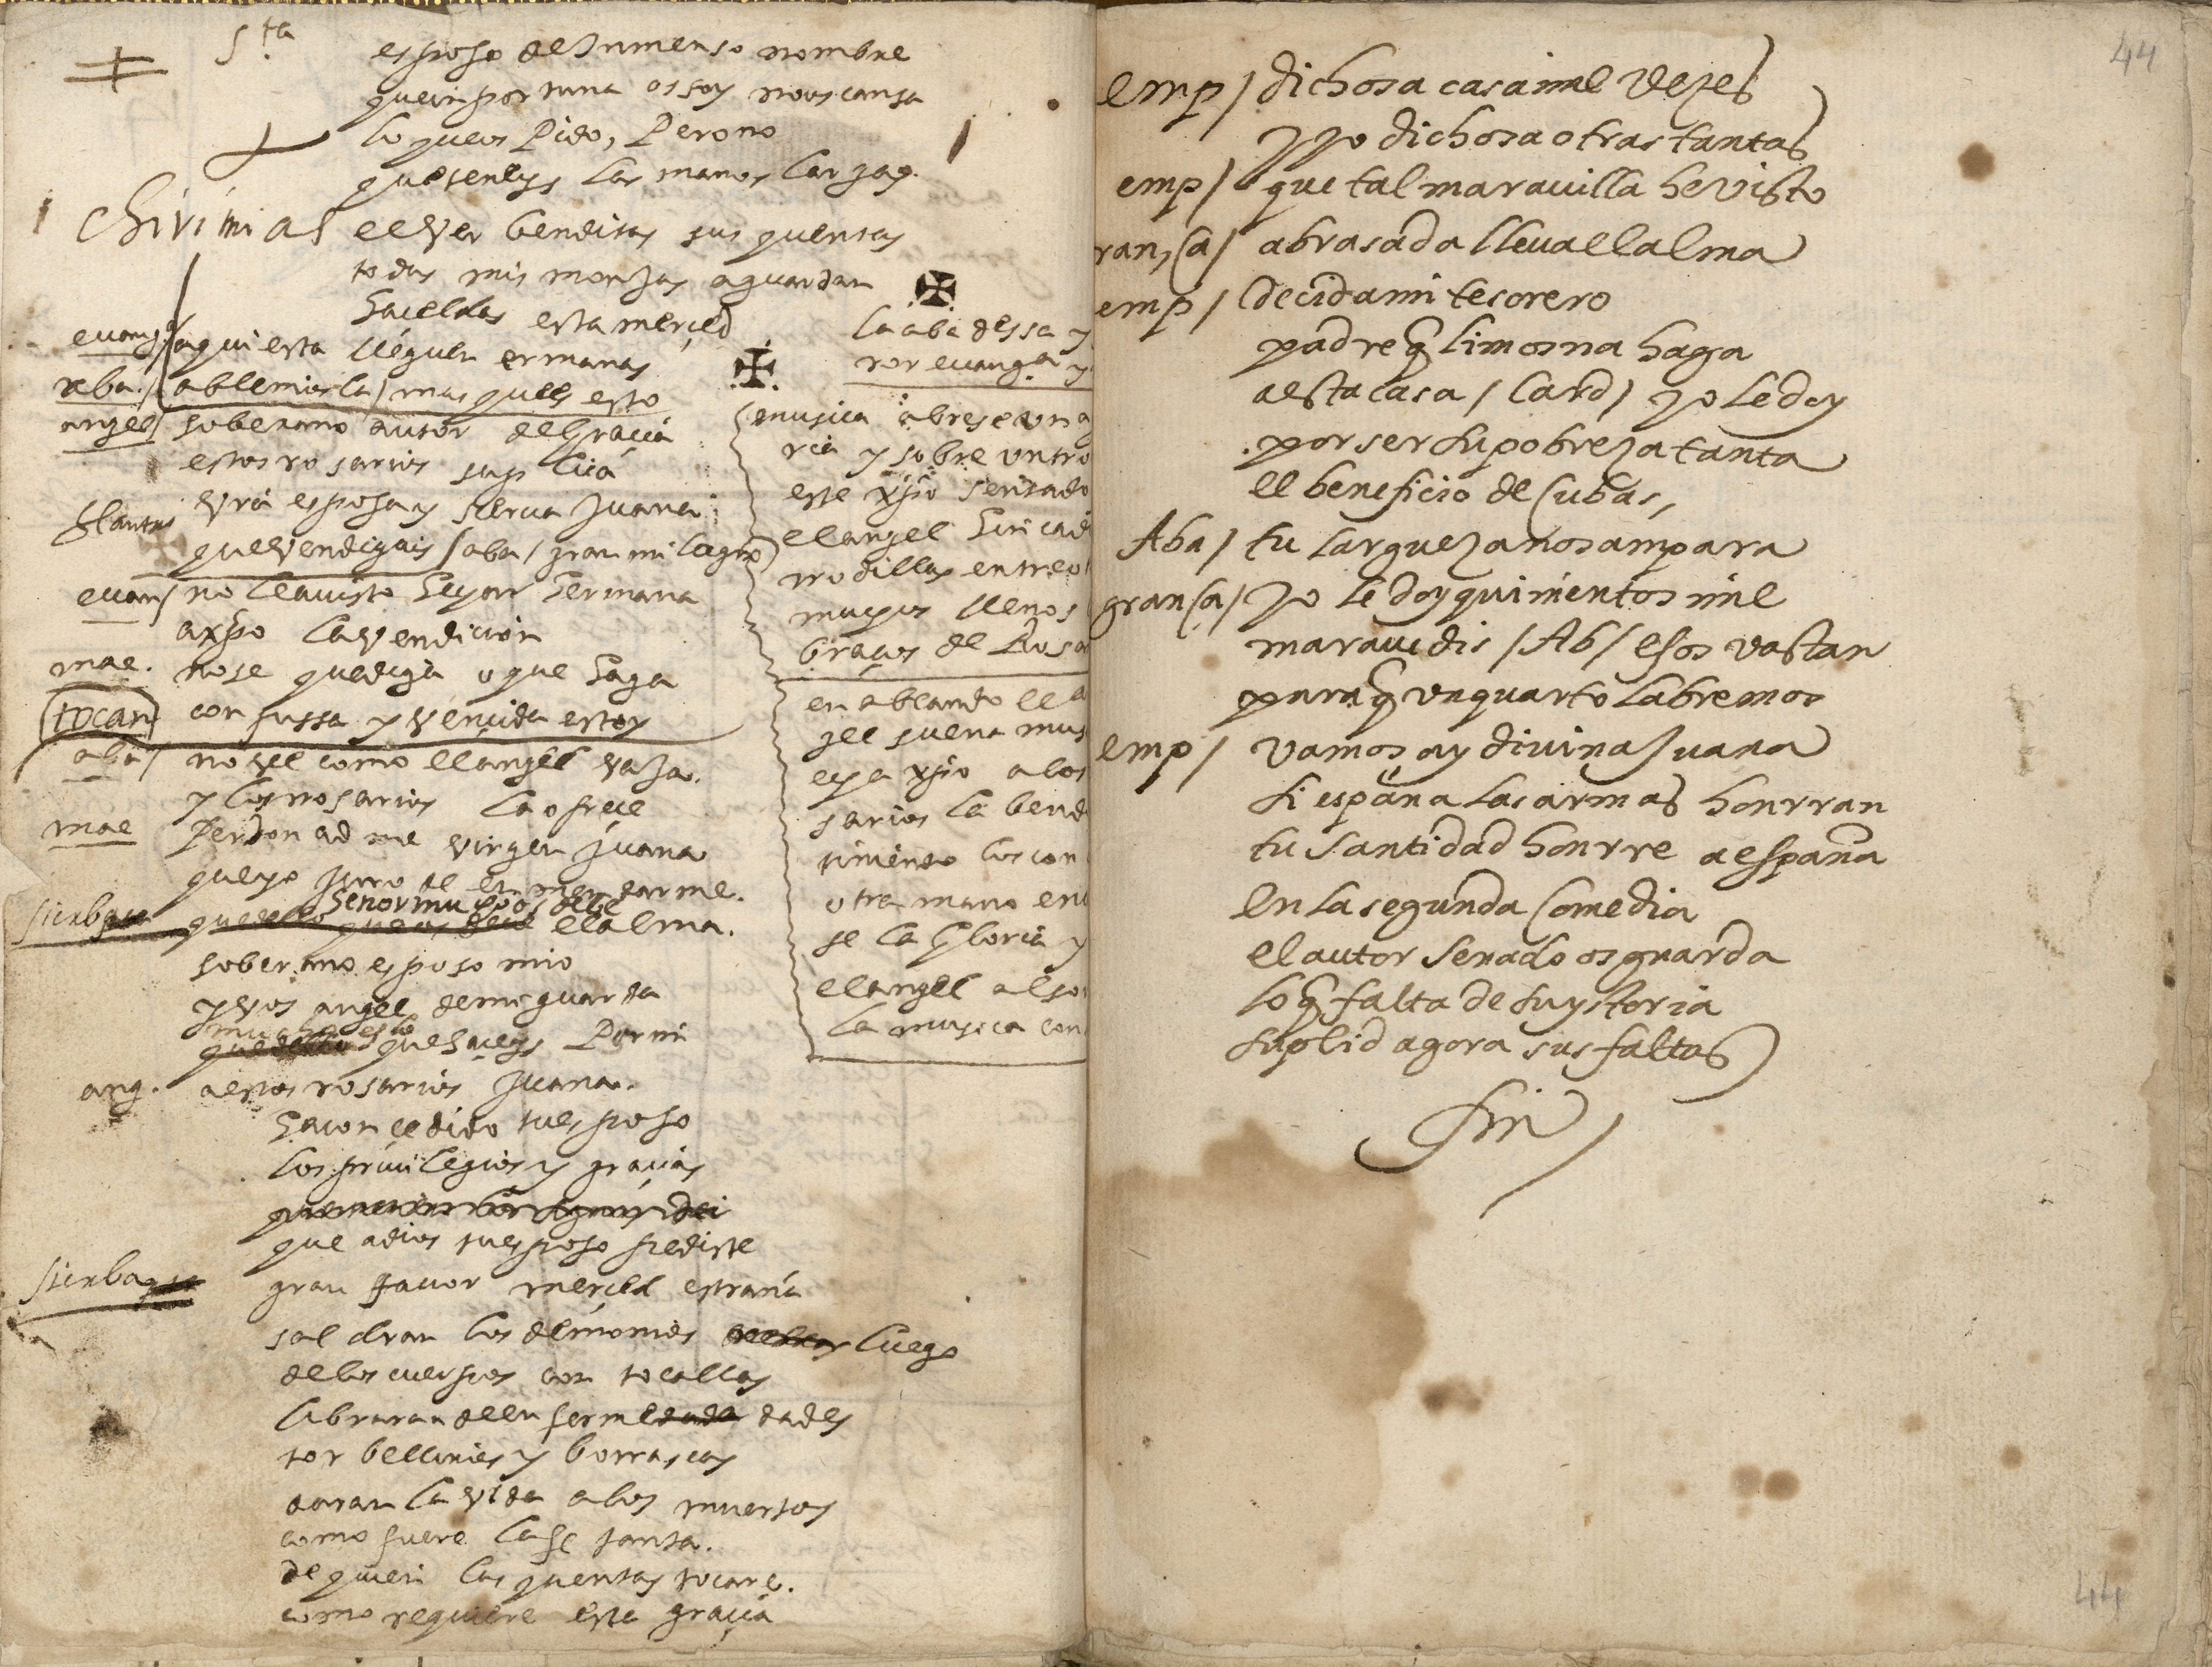 Sta
esposo de Inmenso nombre
queinportuna os soy no os cansa
lo que os Pido, Perono
que teneys las manos largas.
chirimias
el ver benditas sus quentas
todas mis monjas aguardan
haceldas esta merçed
evangª/ aqui esta lleguen ermanas
aba./ ablemosla/ mas que es esto
angel/ soberano autor de Gracia
estos rosarios suplica
vrã esposa y sierva Juana
quevendigais / aba / gran milagro
evan/ no le a visto
hermana
a xpo la vendicion
mae. no se que diga o que haga
(tocan) confussa y vencida estoy
aba/ no vee como el angel vaja.
y los rosarios la ofrece
mae Perdonadme virgen Juana
que yo juro de enmendarme.
señor mucho os debe el alma.
soberano esposo mio
y vos angel de mi guarda
mucho es lo que haceys Por mi
ang. a estos rosarios Juana.
ha concedido tu esposo
los privilegios y gracias
que a dios tu esposo pediste
gran favor merced estraña
saldran los demonios luego
de los cuerpos con tocallas
libraran de enfermedades
torbellinos y borrascas
daran la vida a los muertos
como fuere la fe santa.
de quien las quentas tocare.
como requiere esta gracia
la abadessa y
ror evangª y
(musica abrese una
ria y sobre un tro
este xpo sentado
el angel hincad
rrodillas entre o
muchos llenos
braços de Rosa
en ablando el a
gel suena mus
echa xpo a los
sarios la bend
otra mano en
se la Gloria y
el angel al so
la musica con
44
emp/ dichosa casa mil vezes
y yo dichosa otras tantas
emp/ que tal maravilla he visto
ran,Ca/ abrasada lleva el alma
emp/ decid a mi tesorero
padre q̃ limosna haga
a esta casa / Card / yo le doy
por ser su pobreza tanta
el beneficio de Cubas,
Aba/ tu largueza nos ampara
granCa/ yo le doy quinientos mil
maravedis / Ab / esos vastan
para q̃ un quarto labremos
emp/ vamos ay divina Juana
si españa las armas honrran
tu santidad honrre a españa
en la segunda Comedia
el autor senado os guarda
lo q̃ falta de su ystoria
suplid agora sus faltas
fin
44